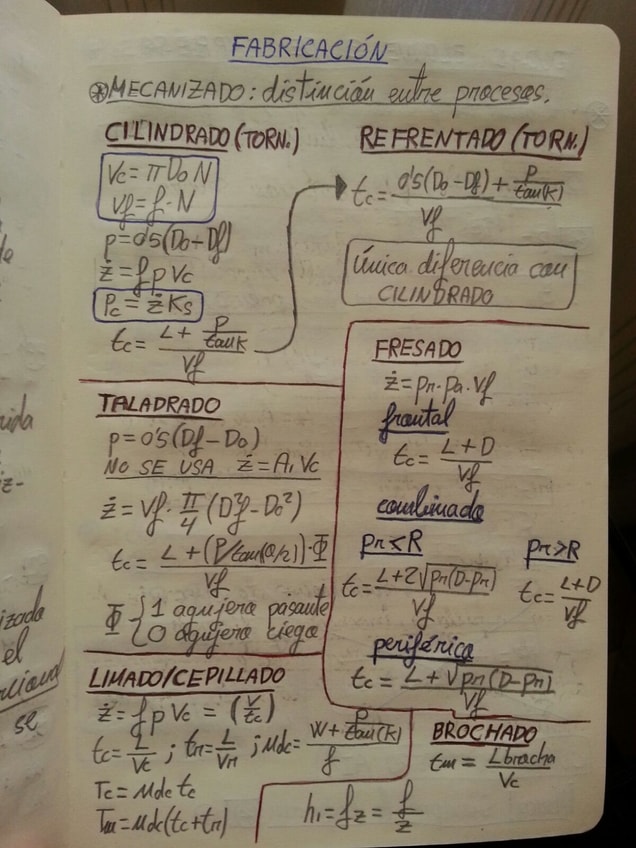 FABRICACIÓN
⊛MECANIZADO: distinción entre procesos.
CILINDRADO (TORN.)
Vc = π Do N
Vf = f · N
p = 0'5 (Do - Df)
ż = f p Vc
Pc = ż Ks
tc = (L + p/tan K) / Vf
REFRENTADO (TORN.)
tc = (0'5(Do - Df) + p/tan(K)) / Vf
Única diferencia con
CILINDRADO
TALADRADO
p = 0'5 (Df - Do)
NO SE USA ż = A1 Vc
ż = Vf · π/4 (D²f - Do²)
tc = (L + (P/tan(α/2)) · Φ) / Vf
Φ { 1 agujero pasante
0 agujero ciego
FRESADO
ż = pr · pa · Vf
frontal
tc = (L + D) / Vf
combinado
pr < R
tc = (L + 2√(pr(D - pr))) / Vf
pr > R
tc = (L + D) / Vf
periférico
tc = (L + √(pr(D - pr))) / Vf
LIMADO/CEPILLADO
ż = f p Vc = (V/tc)
tc = L/Vc ; tr = L/Vr ; Ndc = (W + p/tan(K)) / f
Tc = Ndc tc
Tm = Ndc (tc + tr)
h1 = fz = f/z
BROCHADO
tm = Lbrocha / Vc
rida
iz-
izado
el
rcional
se